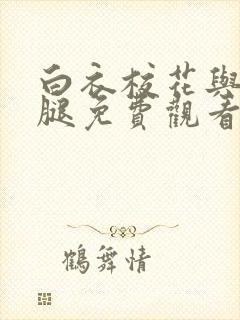 白衣校花與
腿免費觀看
鶴舞情